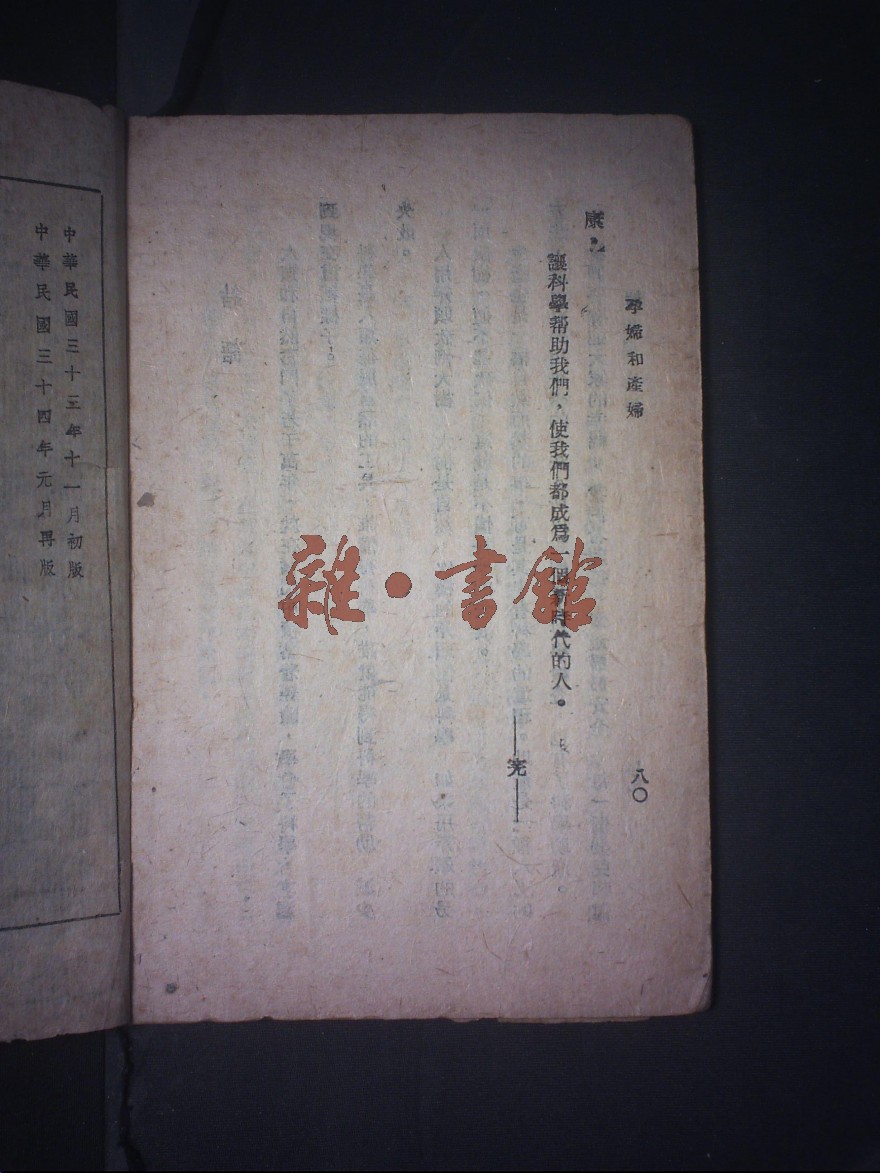 孕婦和產婦
八〇
康
讓科學帮助我們，使我們都成爲一個新時代的人。
——完——
中華民國三十三年十一月初版
中華民國三十四年元月再版
雜·書館